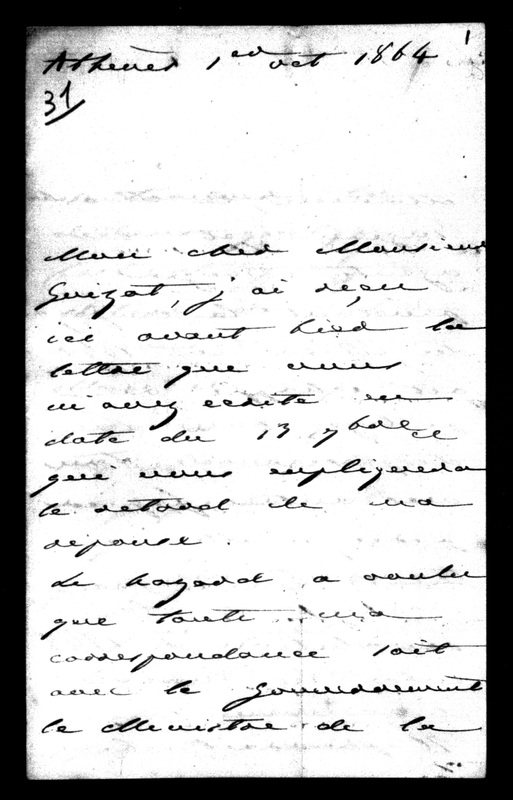 Athènes 1er oct 1864
1
31
Mon cher Monsieur
Guizot, j'ai reçu
ici avant hier la
lettre que vous
m'avez ecrite en
date du 13 7bre ce
qui vous expliquera
le retard de ma
reponse.
Le hazard a voulu
que toute ma
correspondance soit
avec le Gouvernement
le Ministre de la